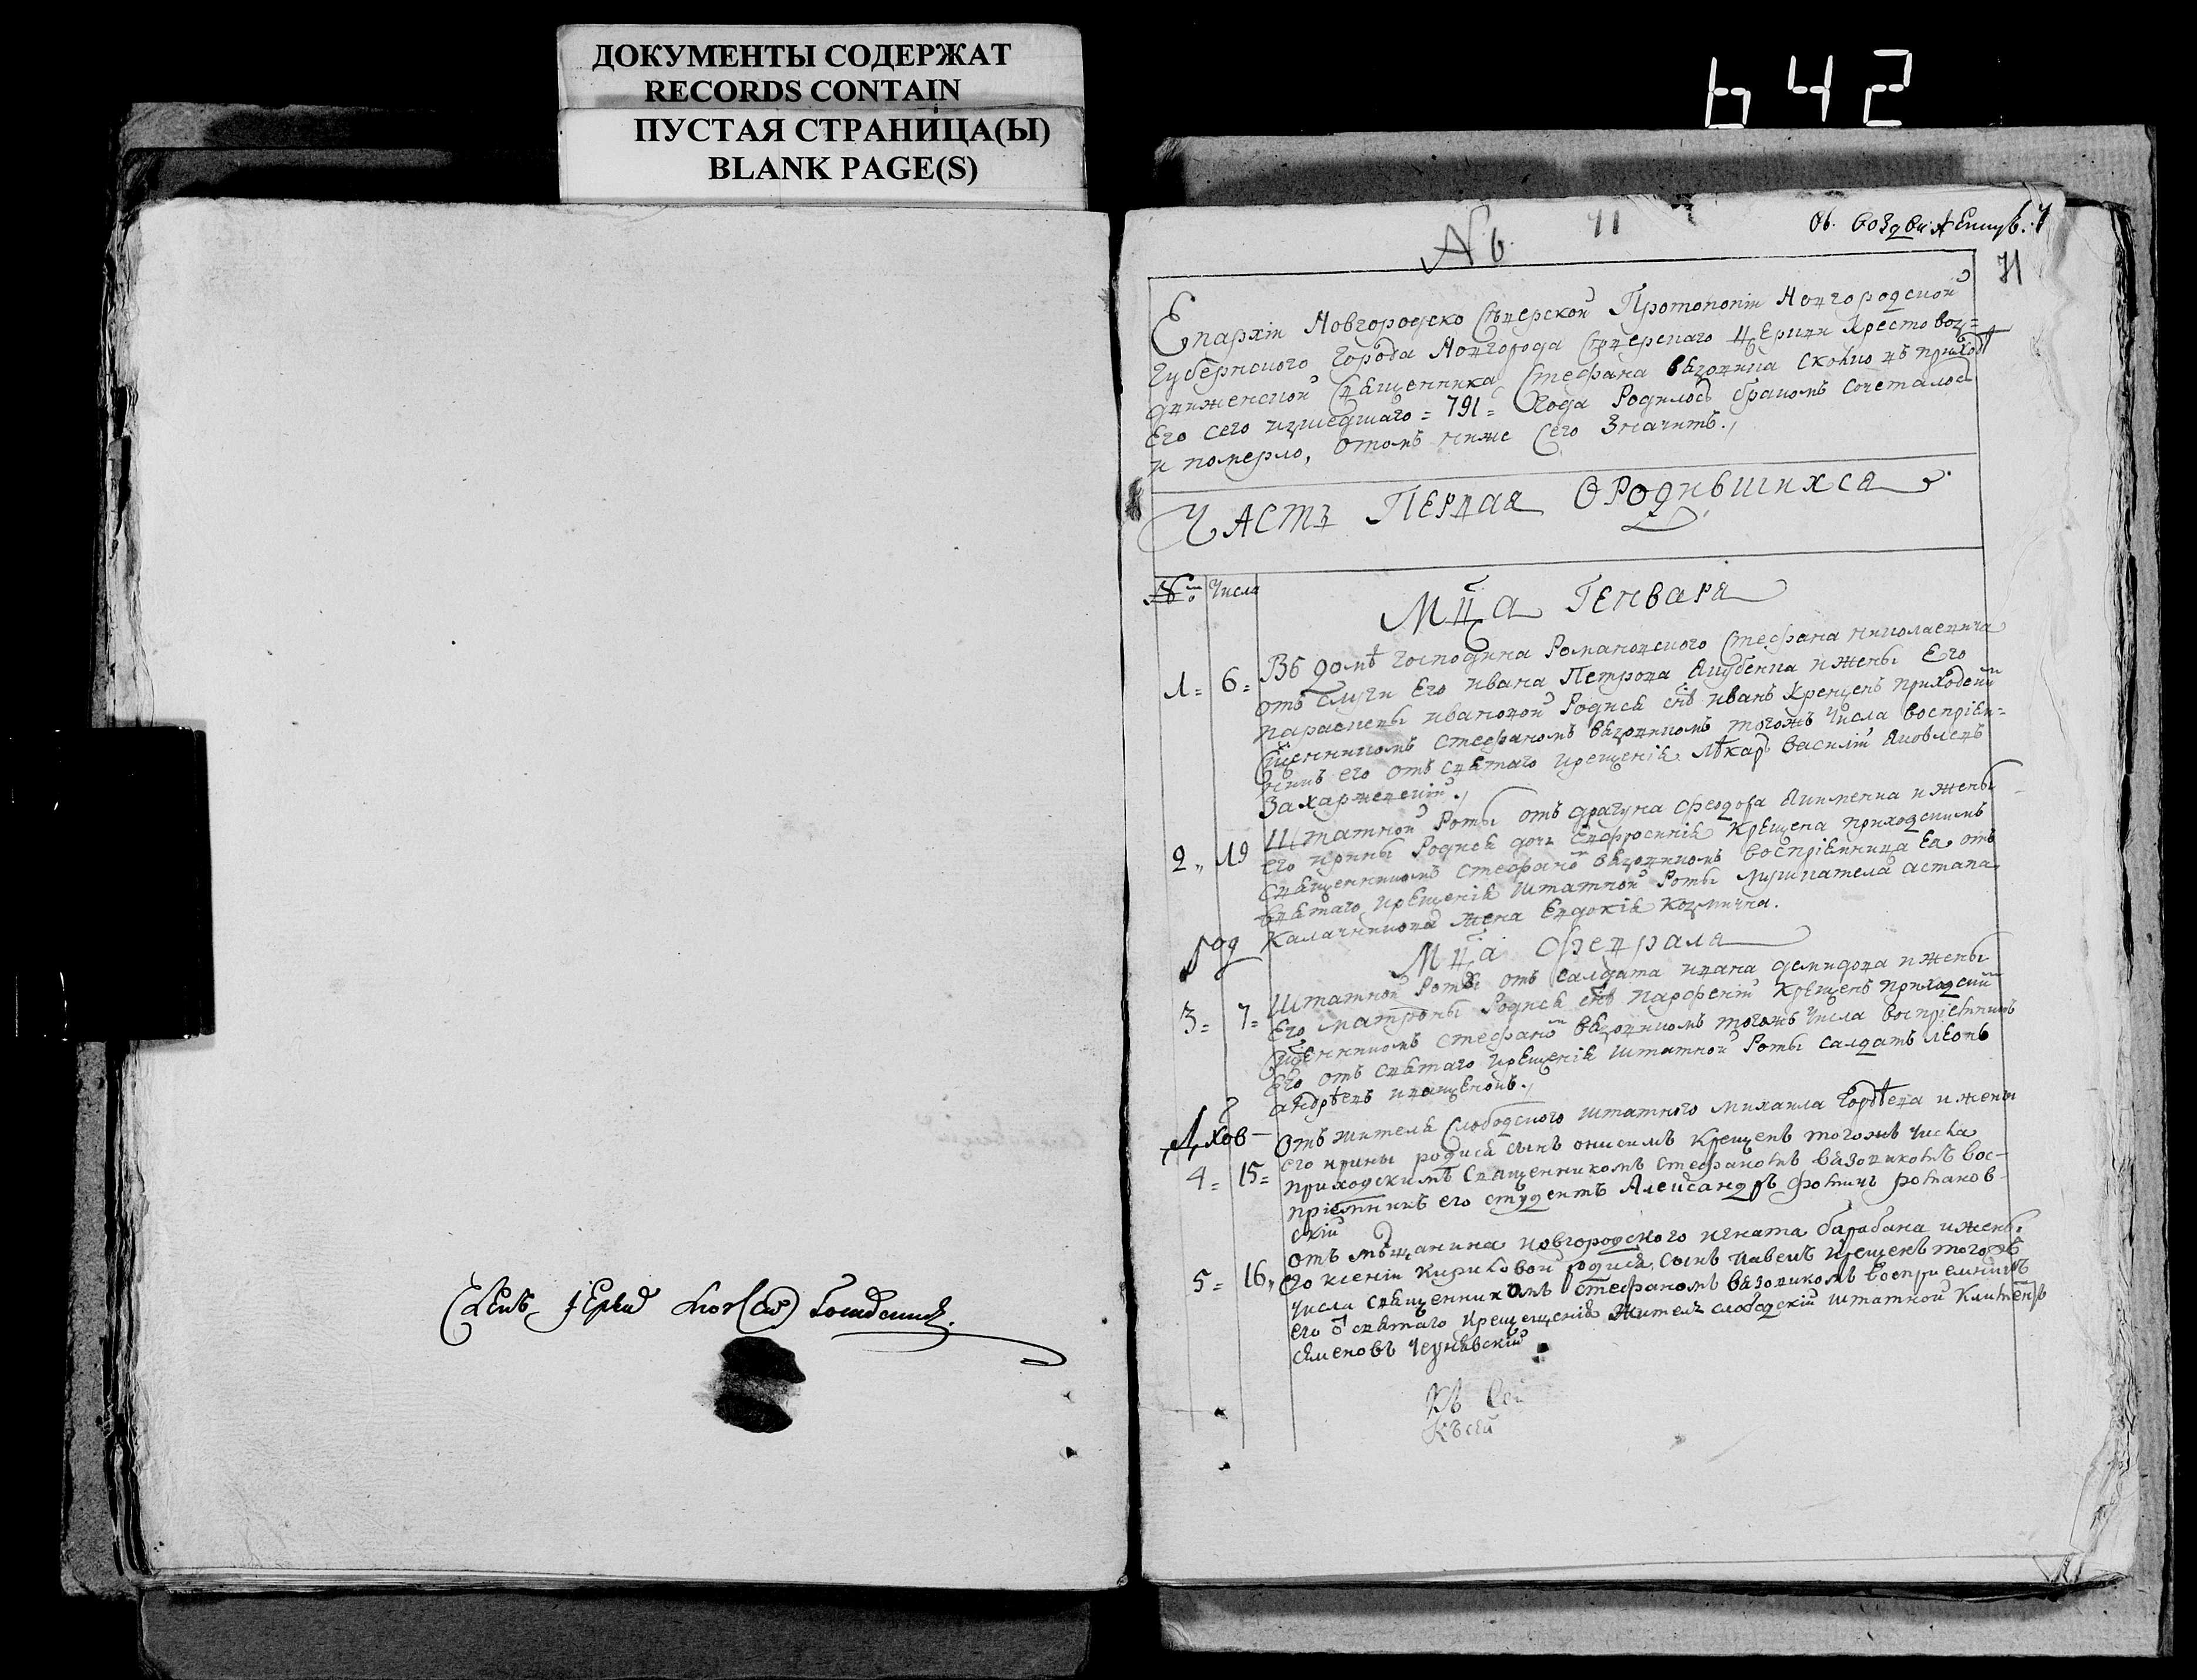 ДОКУМЕНТЫ СОДЕРЖАТ
RECORDS CONTAIN
ПУСТАЯ СТРАНИЦА(Ы)
BLANK PAGE(S)
642
№ 6.
71
71
Епархіи Новгородско Сѣверской Протопопіи Новгородской
Губернского города Новгорода Сѣверскаго Церкви Кресто воз=
движенской Священника Стефана Вязовика сколко въ приходѣ
Его сего изшедшаго = 791 = Года Родилось бракомъ сочеталось
и померло, о томъ ниже сего Значитъ.
Часть Первая О Родившихся
№ Числа
Мца Генваря
1 = 6 = Въ домѣ господина Романовского Стефана николаевича
отъ слуги Его ивана Петрова Якубенка и жены Его
параскевы ивановой Родися снъ иванъ крещенъ приходский
Сщенникомъ стефаномъ вязовикомъ тогожъ числа воспріем=
никъ его отъ святаго крещенія лѣкар василій Яковлевъ
Захаржевскій
2 19 Штатной Роты отъ драгуна феодора Якименка и жены
его ирины Родися дочь Евфросинія крещена приходскимъ
священникомъ стефано вязовикомъ воспріемница Ея отъ
святаго крещенія штатной Роты мушкатера астапа
Калачникова жена Евдокія козмична.
Мца февраля
3 = 7 = Штатной Роты отъ салдата ивана демидова и жены
Его матроны Родися снъ парфеній крещенъ приходский
Сщенникомъ стефано вязовикомъ тогожъ числа воспріемникъ
Его отъ святаго крещенія штатной Роты салдатъ леонъ
андрѣевъ иващенокъ.
Отъ жителя слободского штатного михаила Гордѣева и жены
4 = 15 = его ирины родися сынъ онисимъ крещенъ тогожъ числа
приходскимъ священникомъ стефаномъ вязовикомъ вос-
пріемникъ его студентъ Александръ фомичъ романов
скій
отъ мѣщанина новгородского игната барабана и жены
5 = 16 его ксеніи кириловой родися сынъ павелъ крещенъ тогожъ
числа священникомъ стефаномъ вязовикомъ воспріемникъ
его ѿ святаго крещенія житель слободскій штатной климентъ
семеновъ чернявскій